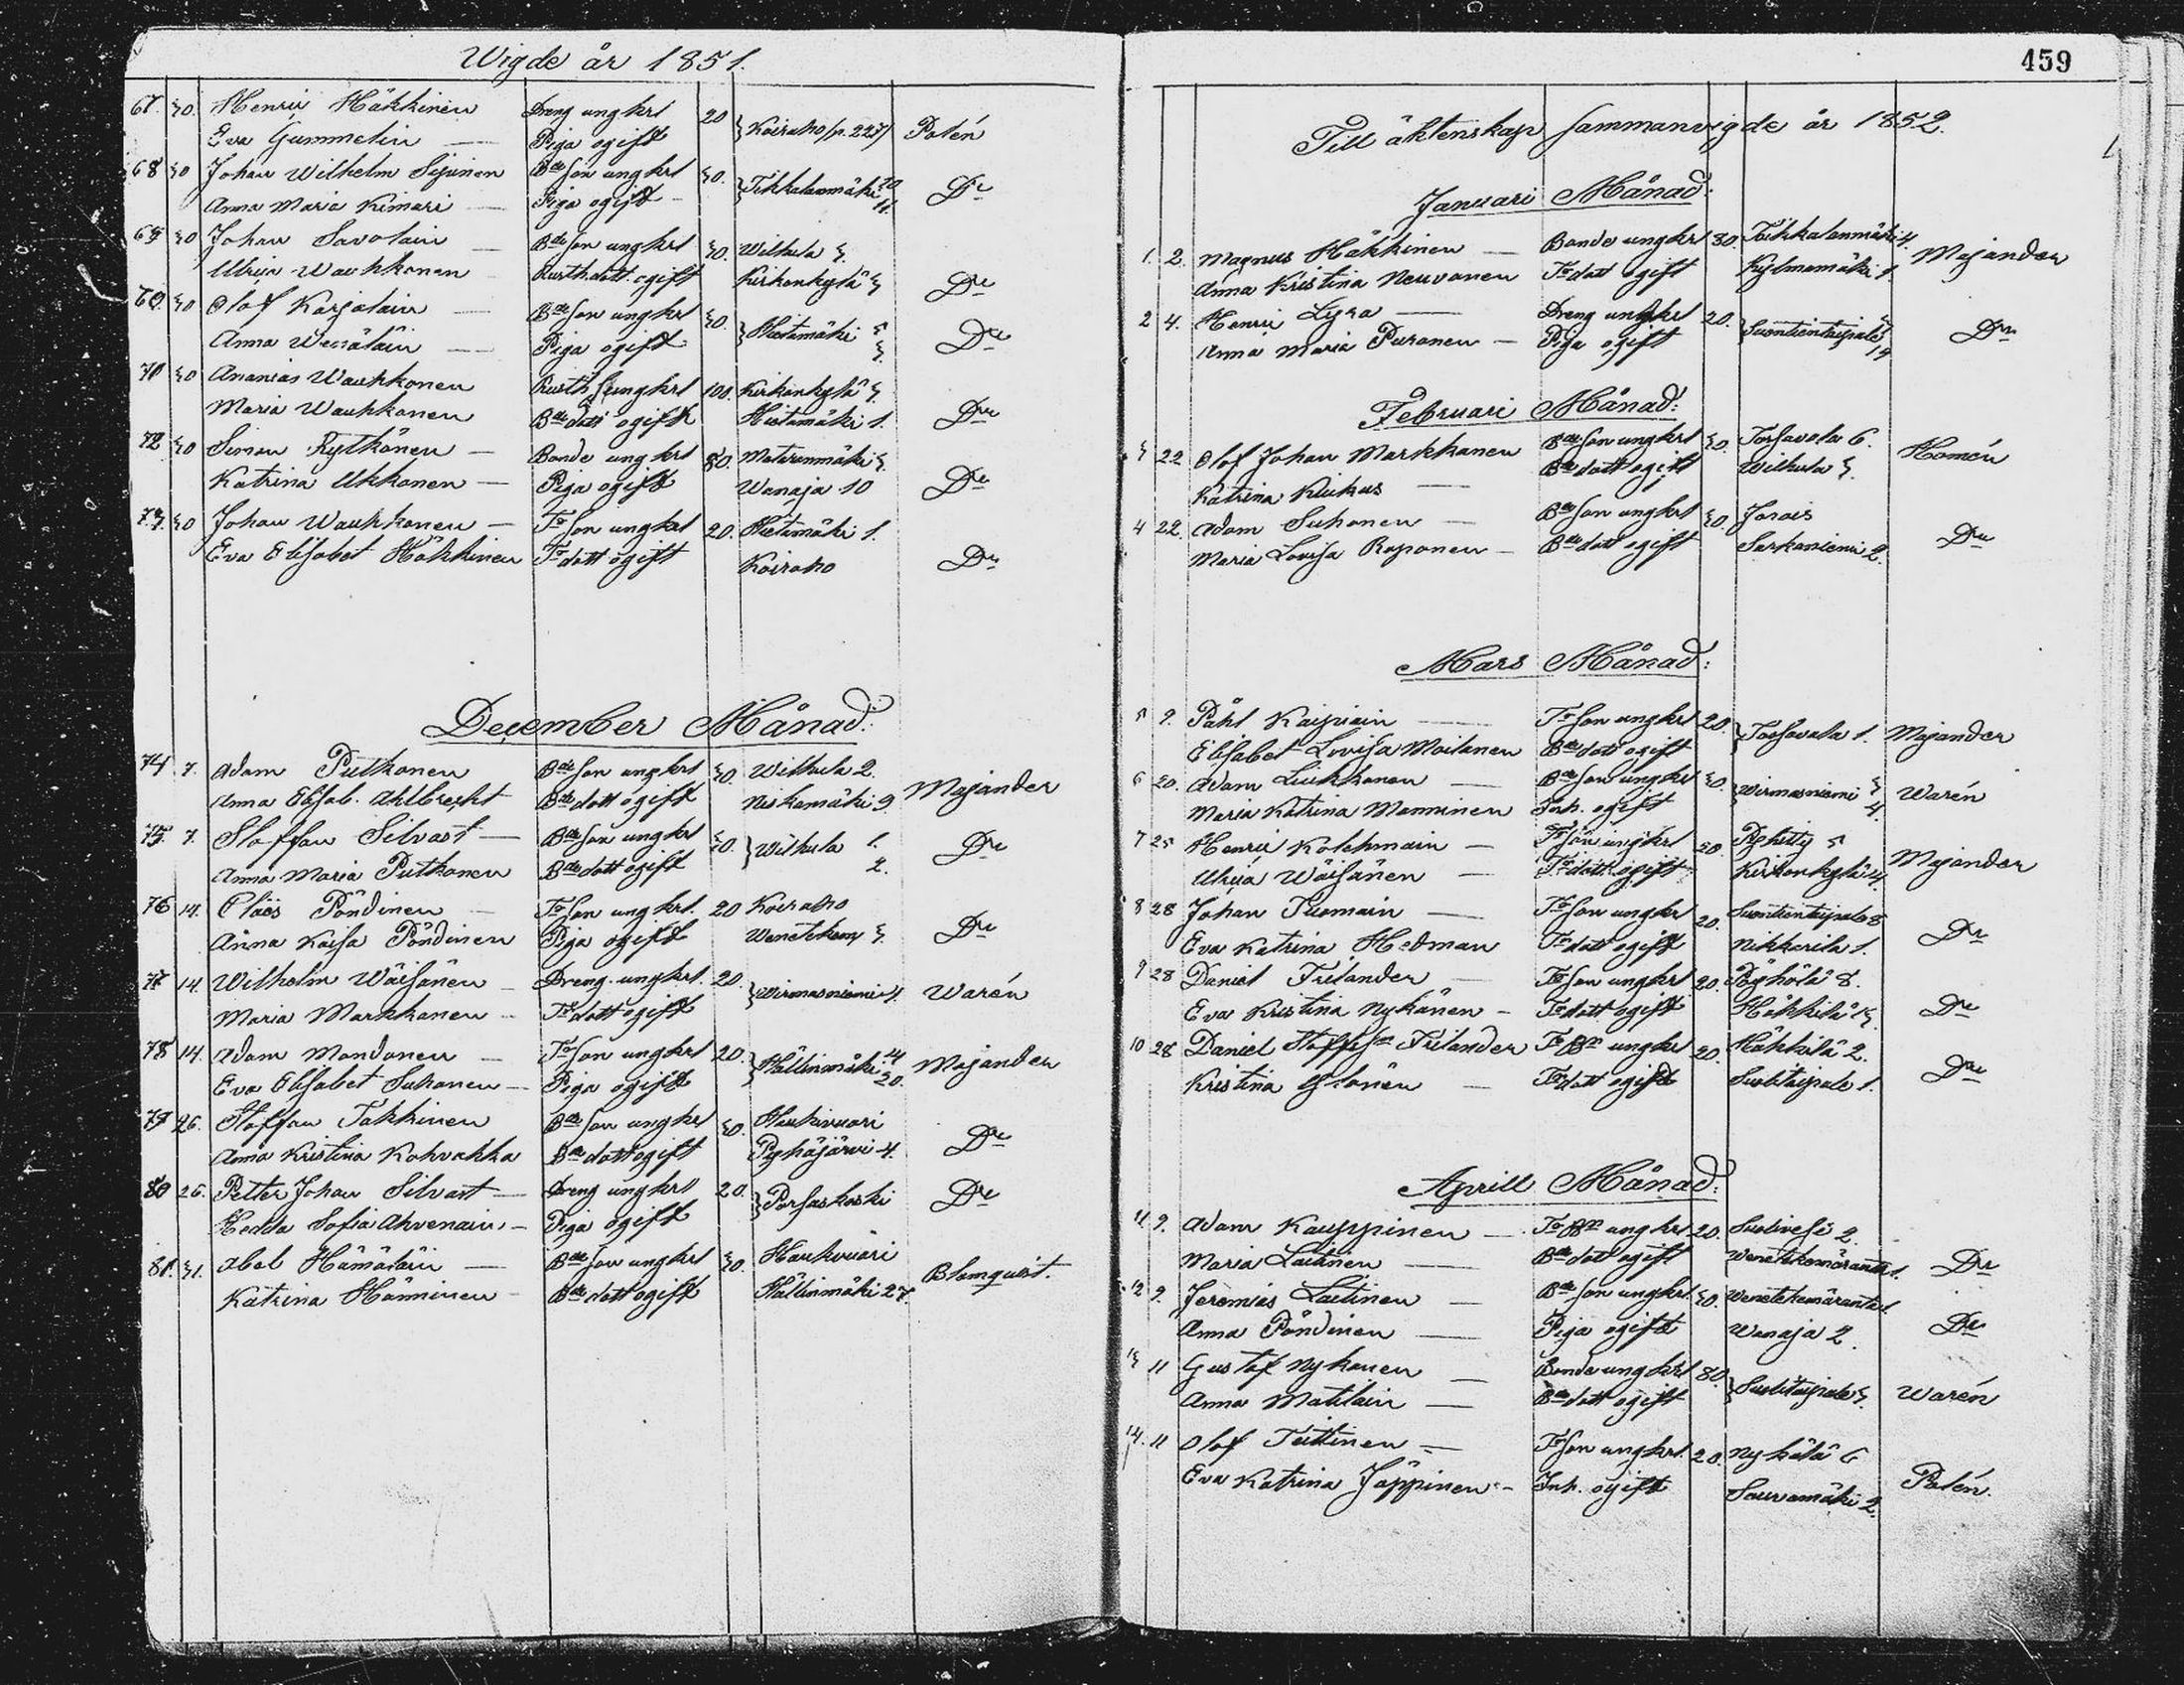 Wigde år 1851.
67. 30. Henric Häkkinen Dreng ungkrl 20 Koiraho (p. 227) Polén
Eva Gummelin — Piga ogift
68 30 Johan Wilhelm Sijvinen Bde Son ungkrl 30. Tikkalanmäki 10 Do
Anna Maria Kimari — Piga ogift 11.
69 30 Johan Savolain — Bde Son ungkrl 30. Wilkula 3.
Ulrica Wauhkonen Rusth. dott. ogift Kirkonkylä 3 Do
70. 30 Olof Karjalain — Bde Son ungkrl 30. Hietamäki 5 Do
Anna Wenäläin — Piga ogift 3.
71 30 Ananias Wauhkonen Rusth. S. ungkrl 100. Kirkonkylä 3.
Maria Wauhkonen Bde dott ogift Hietamäki 1. Do
72 30 Simon Rytkönen — Bonde ungkrl 80. Matinmäki 3.
Katrina Ukkonen — Piga ogift Wanaja 10 Do
73. 30 Johan Wauhkonen — To Son ungkrl 20. Hietamäki 1.
Eva Elisabet Häkkinen To dott ogift Koiraho Do
December Månad:
74. 7. Adam Putkonen Bde Son ungkrl 30. Wilkula 2.
Anna Elisab. Ahlbrecht Bde dott ogift Niskamäki 9 Majander
75. 7. Staffan Silvast — Bde Son ungkrl 30. Wilkula 1. Do
Anna Maria Putkonen Bde dott ogift 2.
76 14. Claës Pöndinen — To Son ungkrl. 20 Koiraho
Anna Kaisa Pöndinen Piga ogift 3. Do
77 14. Wilhelm Wäisänen Dreng ungkrl. 20. Wirmasniemi 1. Warén
Maria Markkanen To dott ogift
78 14. Adam Mondonen — To Son ungkrl 20. Hällinmäki 14 Majander
Eva Elisabet Suhonen — Piga ogift 20.
79 26. Staffan Takkinen Bde Son ungkrl 30. Haukivuori
Anna Kristina Kohvakka Bde dott ogift Pyhäjärvi 4. Do
80 26. Petter Johan Silvast — Dreng ungkrl 20. Porsaskoski Do
Hedda Sofia Ahvenain — Piga ogift
81. 31. Abel Hämäläin — Bde Son ungkrl 30. Haukvuori
Katrina Hänninen Bde dott ogift Hällinmäki 27. Blomqvist.
459
Till äktenskap sammanvigde år 1852.
Januari Månad:
1. 2. Magnus Häkkinen — Bonde ungkrl 80. Tikkalanmäki 4. Majander
Anna Kristina Neuvonen To dott ogift Kylmämäki 1.
2 4. Henric Lyra — Dreng ungkrl 20. Suontientaipale Do
Anna Maria Puranen — Piga ogift 19
Februari Månad:
3 22 Olof Johan Markkanen Bde Son ungkrl 30. Torsavola 6. Homén
Katrina Kiukas — Bde dott ogift Wilkula 3.
4 22. Adam Suhonen — Bde Son ungkrl 30. Jorois
Maria Lovisa Roponen — Bde dott ogift Sarkaniemi 2. Do
Mars Månad:
5 9. Påhl Kaipiain — To Son ungkrl 20. Torsavola 1. Majander
Elisabet Lovisa Moilanen Bde dott ogift
6 20. Adam Liukkonen — Bde Son ungkrl 30. Wirmasniemi 3 Warén
Maria Katrina Manninen Inh. ogift 4.
7 25 Henric Kolehmain — To Son ungkrl 20. 5
Ulrica Wäisänen — To dott ogift Kirkonkylä 4. Majander
8 28 Johan Tuomain — To Son ungkrl 20. Suontientaipale 8
Eva Katrina Hedman To dott ogift Nikkarila 1. Do
9 28 Daniel Frilander — To Son ungkrl 20. Pöyhölä 8.
Eva Kristina Nykänen — To dott ogift Häkkilä 13. Do
10 28 Daniel Staffss Frilander To ungkrl 20. Häkkilä 2.
Kristina Ylönen — To dott ogift Suolitaipale 1. Do
Aprill Månad:
11 9. Adam Kauppinen — To ungkrl 20. 2.
Maria Laitinen — Bde dott ogift Wenetekemäranta 1. Do
12 9. Jeremias Laitinen — Bde Son ungkrl 30. Wenetekemäranta 1.
Anna Pöndinen — Piga ogift Wanaja 2. Do
13 11 Gustaf Nykänen — Bonde ungkrl 80. Suolitaipale 3. Warén
Anna Matilain — Bde dott ogift
14. 11 Olof Teittinen — To Son ungkrl. 20. Nyhälä 6
Eva Katrina Jäppinen — Inh. ogift Sauvamäki 2. Polén.